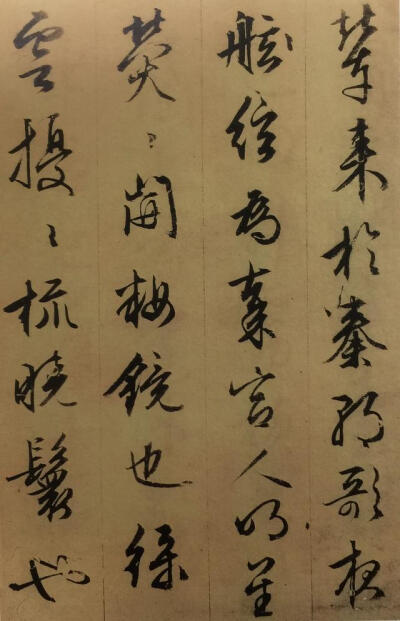 輦來於秦朝歌夜
舷絃為秦宮人明星
熒〻開粧鏡也綠
雲擾〻梳曉鬟也